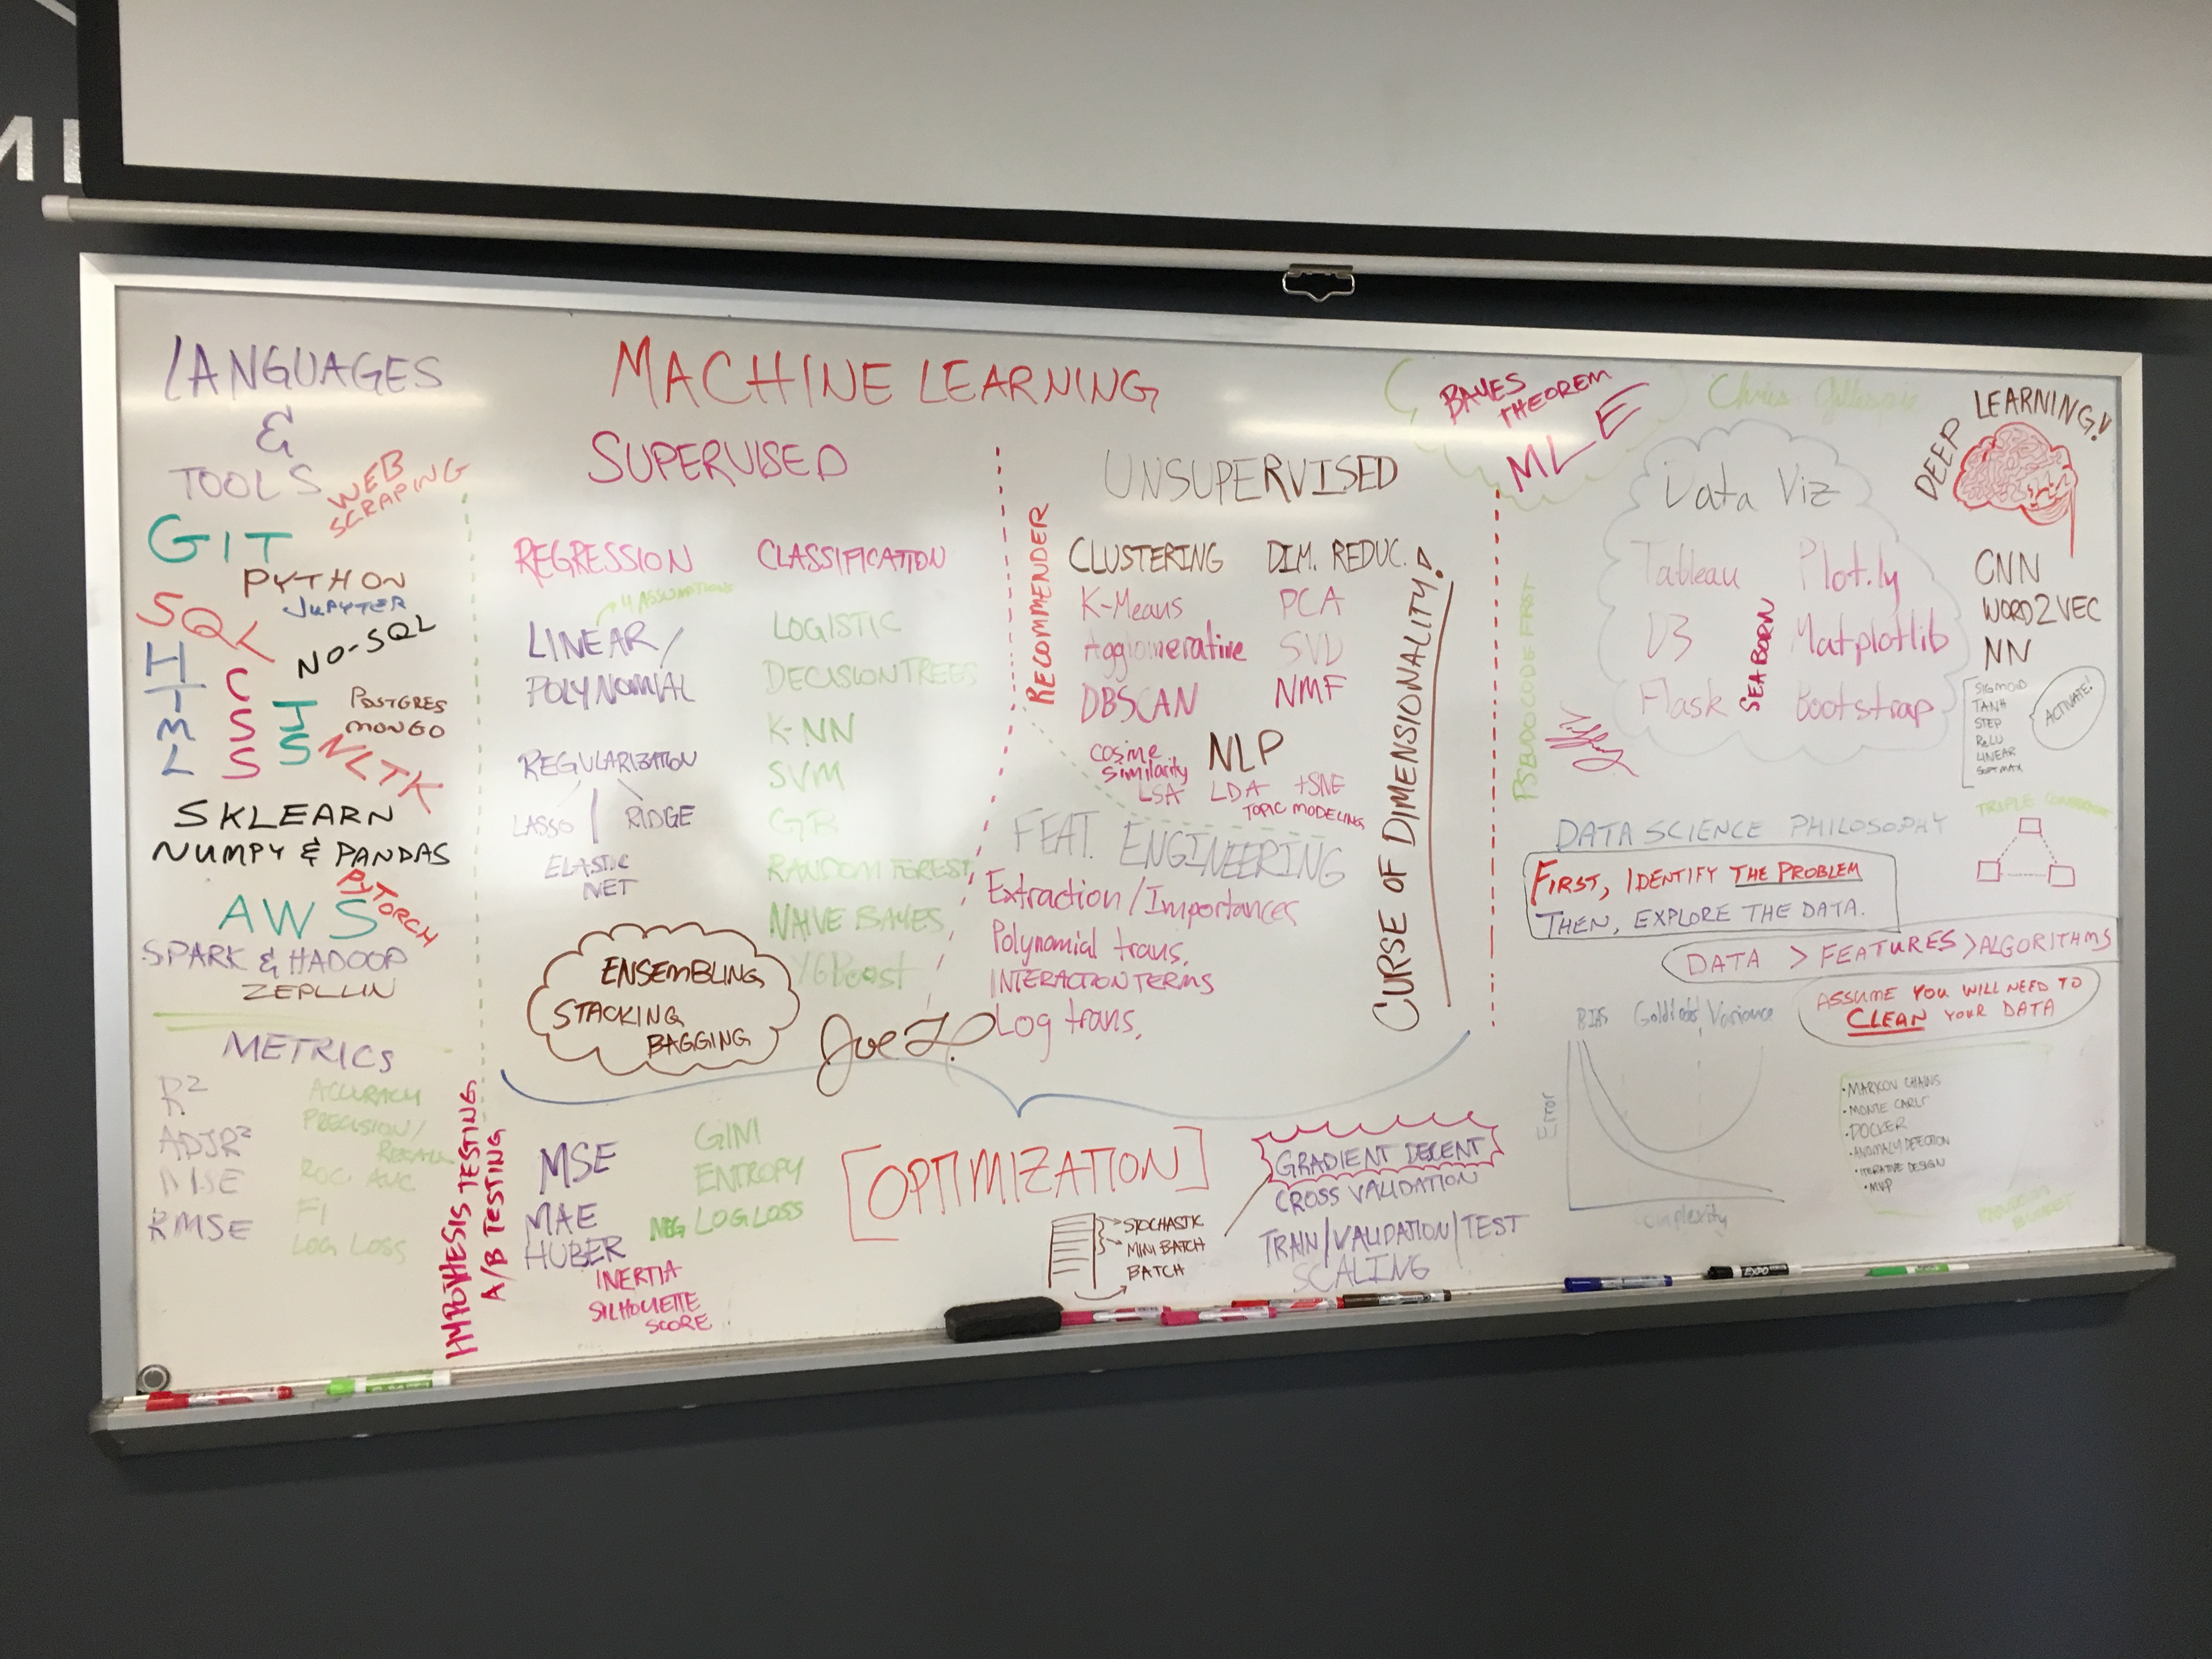 LANGUAGES
&
TOOLS
WEB
SCRAPING
GIT
PYTHON
JUPYTER
SQL
NO-SQL
HTML
CSS
JS
POSTGRES
MONGO
NLTK
SKLEARN
NUMPY & PANDAS
PYTORCH
AWS
SPARK & HADOOP
ZEPLLIN
METRICS
R²
ADJR²
MSE
RMSE
ACCURACY
PRECISION/
RECALL
ROC AUC
F1
LOG LOSS
HYPOTHESIS TESTING
A/B TESTING
MACHINE LEARNING
SUPERVISED
REGRESSION
4 ASSUMPTIONS
LINEAR/
POLYNOMIAL
REGULARIZATION
LASSO
RIDGE
ELASTIC
NET
CLASSIFICATION
LOGISTIC
DECISION TREES
K-NN
SVM
GB
RANDOM FOREST
NAIVE BAYES
XGBoost
ENSEMBLING
STACKING
BAGGING
Joe
RECOMMENDER
UNSUPERVISED
CLUSTERING
K-Means
Agglomerative
DBSCAN
DIM. REDUC.
PCA
SVD
NMF
cosine
similarity
NLP
LSA
LDA
tSNE
TOPIC MODELING
FEAT. ENGINEERING
Extraction/Importances
Polynomial trans.
INTERACTION TERMS
Log trans.
CURSE OF DIMENSIONALITY!
MSE
MAE
HUBER
INERTIA
SILHOUETTE
SCORE
GINI
ENTROPY
NEG LOG LOSS
[OPTIMIZATION]
STOCHASTIC
MINI BATCH
BATCH
GRADIENT DECENT
CROSS VALIDATION
TRAIN/VALIDATION/TEST
SCALING
BAYES
THEOREM
MLE
Chris
PSEUDOCODE FIRST
Data Viz
Tableau
Plot.ly
D3
SEABORN
Matplotlib
Flask
Bootstrap
DEEP LEARNING!
CNN
WORD2VEC
NN
SIGMOID
TANH
STEP
ReLU
LINEAR
SOFTMAX
ACTIVATE!
DATA SCIENCE PHILOSOPHY
FIRST, IDENTIFY THE PROBLEM
THEN, EXPLORE THE DATA.
TRIPLE CONSTRAINT
DATA > FEATURES > ALGORITHMS
ASSUME YOU WILL NEED TO
CLEAN YOUR DATA
BIAS Goldilocks Variance
Error
Complexity
• MARKOV CHAINS
• MONTE CARLO
• DOCKER
• ANOMALY DETECTION
• ITERATIVE DESIGN
• MVP
EXPO